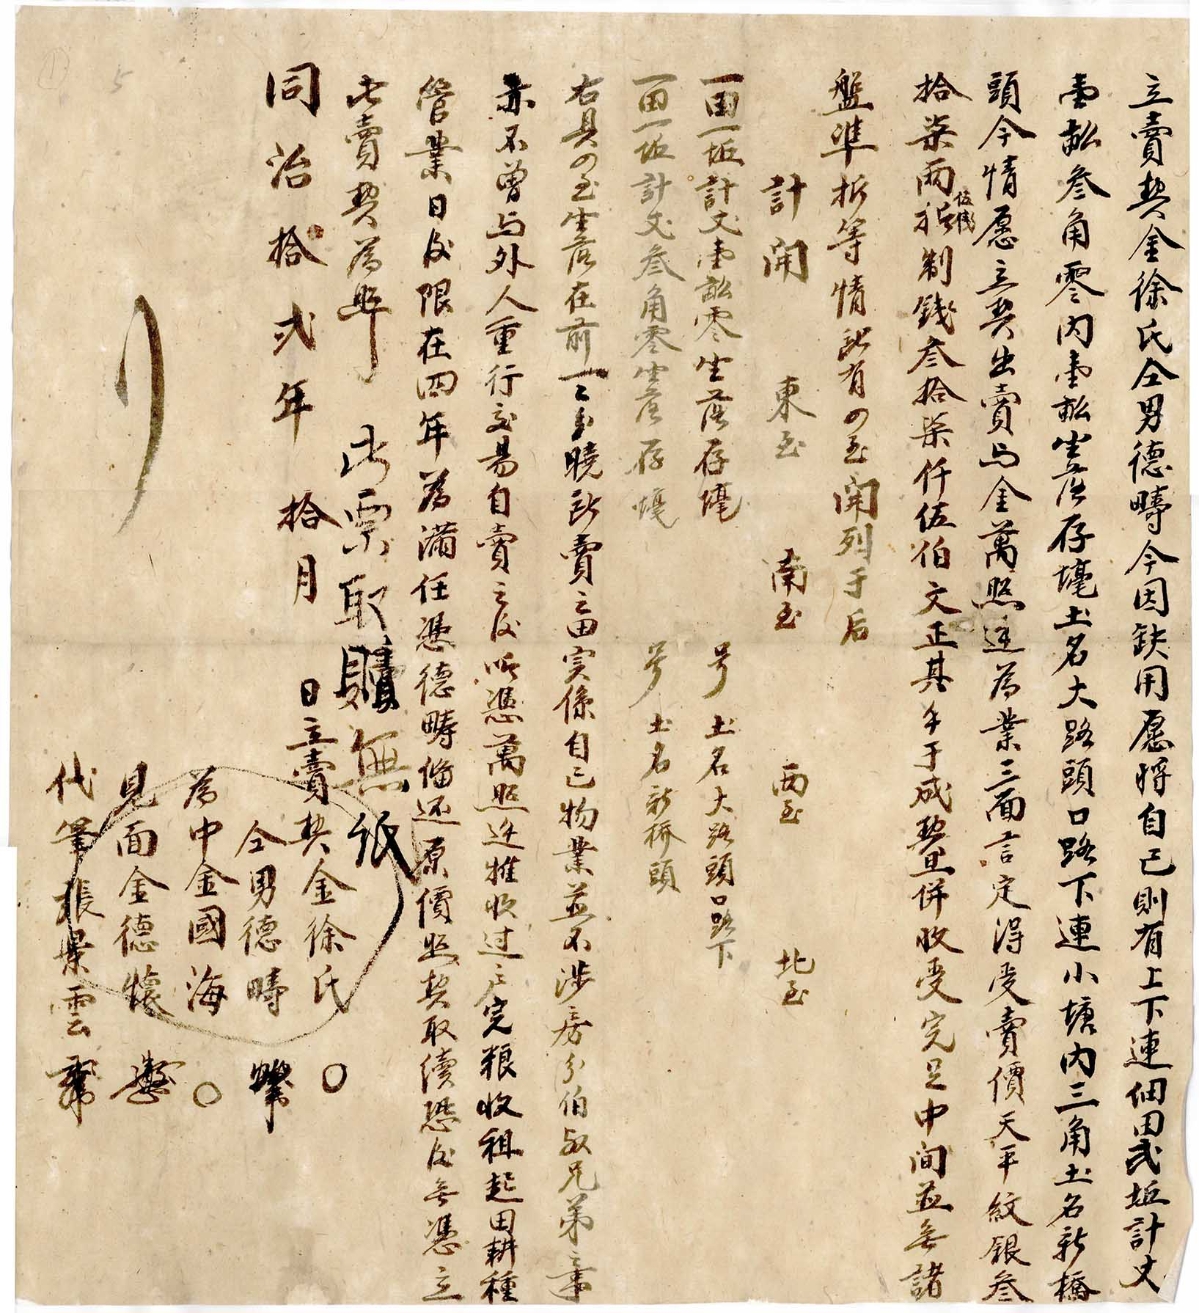 立賣契金徐氏仝男德疇今因缺用愿將自己則有上下連佃田弍坵計丈
壹畝叁角零內壹畝坐落存墘土名大路頭口路下連小塘內三角土名新橋
頭今情愿立契出賣与金萬照廷為業三面言定得受賣價天平紋銀叁
拾柒兩伍錢折制錢叁拾柒仟伍伯文正其錢于成契旦併收受完足中間並無諸
盤準折等情所有四至開列于后
計開 東至 南至 西至 北至
一田一坵計丈壹畝零坐落存墘 号 土名大路頭口路下
一田一坵計丈叁角零坐落存墘 号 土名新橋頭
右具四至坐落在前一一分曉所賣之田実係自己物業並不涉房分伯叔兄弟之事
亦不曾与外人重行交易自賣之后听憑萬照廷推收过户完粮收租起田耕種
管業日后限在四年為滿任憑德疇俻还原價照契取續恐后無憑立
此賣契為照 此票取贖無紙
同治拾弍年 拾月 日立賣契金徐氏 〇
仝男德疇
為中金國海 〇
見面金德懷
代筆張景雲
5